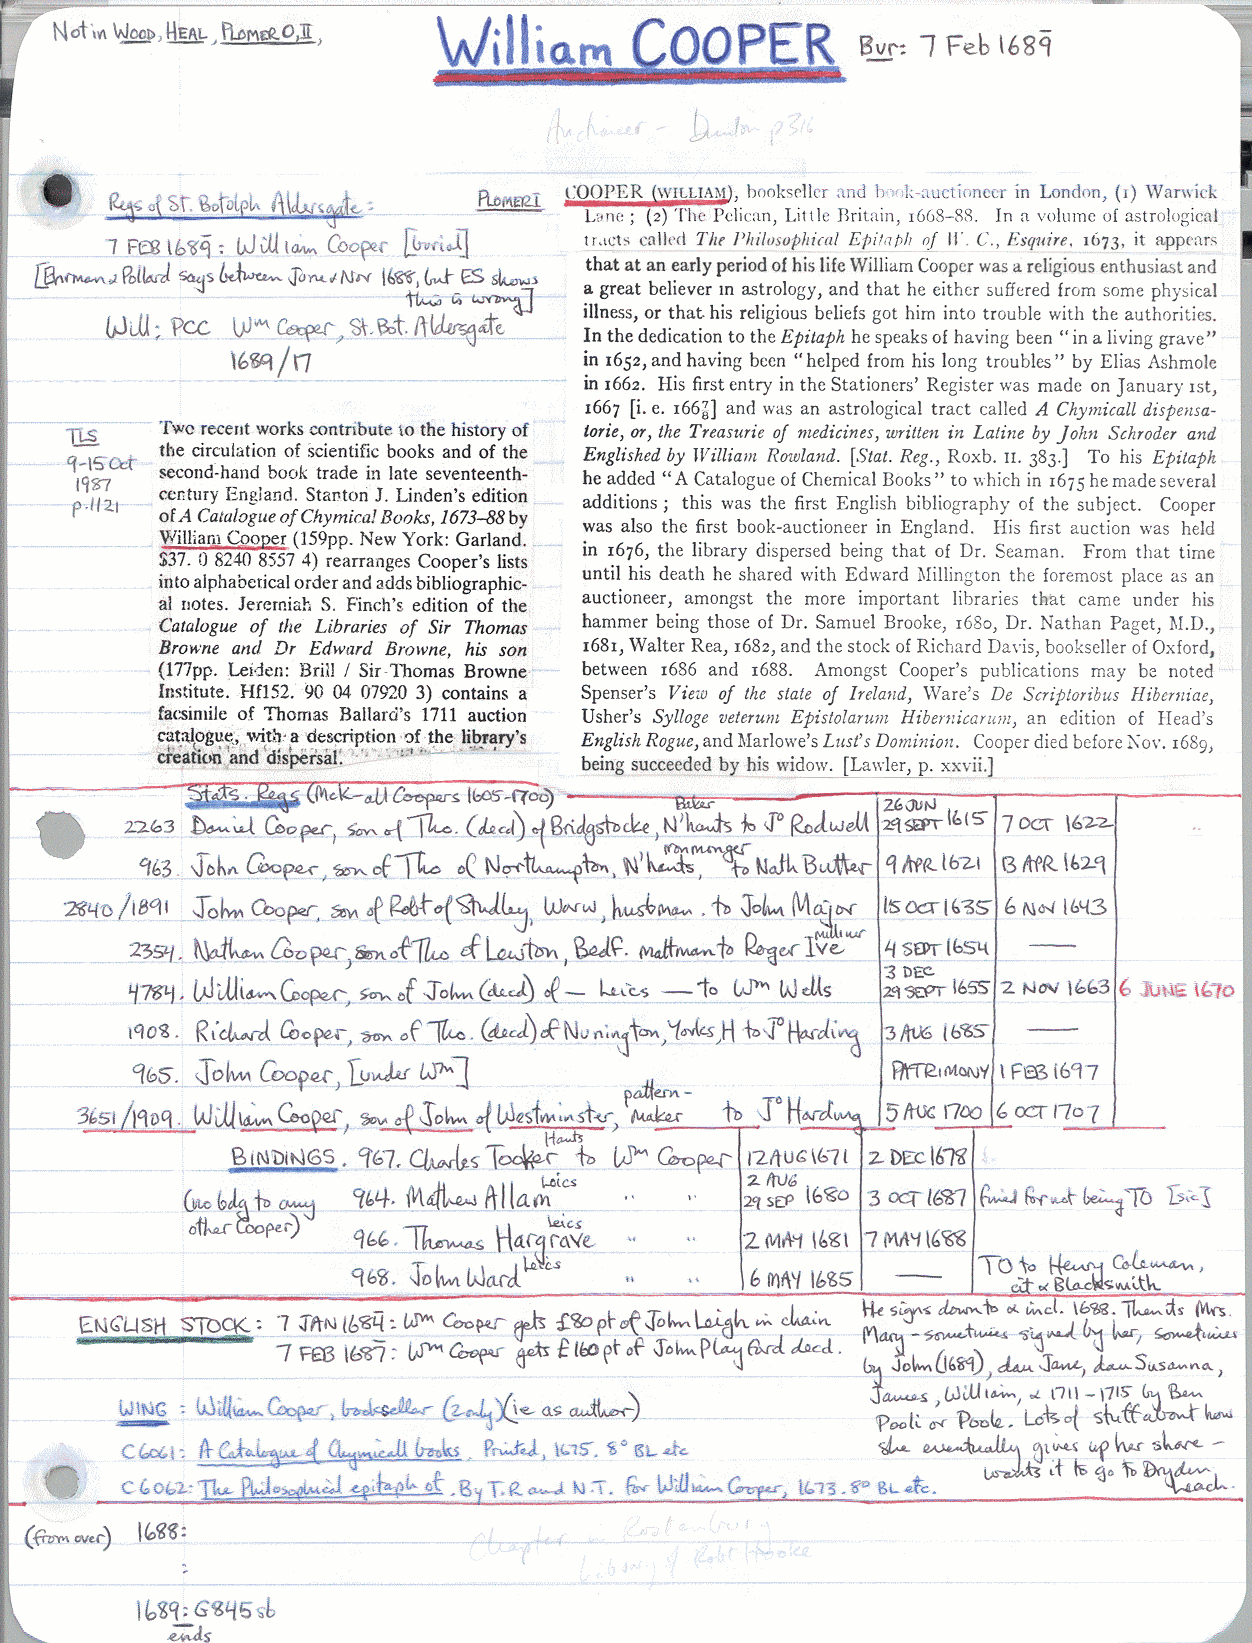 Not in WOOD, HEAL, PLOMER O, II,
William COOPER
Bur: 7 Feb 1689
Auctioneer - Dunton p316
Regs of St. Botolph Aldersgate:
7 FEB 1689: William Cooper [burial]
[Ehrman & Pollard says between June & Nov 1688, but ES shows
this is wrong]
Will: PCC Wm Cooper, St. Bot. Aldersgate
1689/17
TLS
9-15 Oct
1987
p.1121
Two recent works contribute to the history of
the circulation of scientific books and of the
second-hand book trade in late seventeenth-
century England. Stanton J. Linden's edition
of A Catalogue of Chymical Books, 1673–88 by
William Cooper (159pp. New York: Garland.
$37. 0 8240 8557 4) rearranges Cooper's lists
into alphabetical order and adds bibliographic-
al notes. Jeremiah S. Finch's edition of the
Catalogue of the Libraries of Sir Thomas
Browne and Dr Edward Browne, his son
(177pp. Leiden: Brill / Sir Thomas Browne
Institute. Hfl52. 90 04 07920 3) contains a
facsimile of Thomas Ballard's 1711 auction
catalogue, with a description of the library's
creation and dispersal.
PLOMER I
COOPER (WILLIAM), bookseller and book-auctioneer in London, (1) Warwick
Lane; (2) The Pelican, Little Britain, 1668–88. In a volume of astrological
tracts called The Philosophical Epitaph of W. C., Esquire, 1673, it appears
that at an early period of his life William Cooper was a religious enthusiast and
a great believer in astrology, and that he either suffered from some physical
illness, or that his religious beliefs got him into trouble with the authorities.
In the dedication to the Epitaph he speaks of having been "in a living grave"
in 1652, and having been "helped from his long troubles" by Elias Ashmole
in 1662. His first entry in the Stationers' Register was made on January 1st,
1667 [i.e. 166⅞] and was an astrological tract called A Chymicall dispensa-
torie, or, the Treasurie of medicines, written in Latine by John Schroder and
Englished by William Rowland. [Stat. Reg., Roxb. II. 383.] To his Epitaph
he added "A Catalogue of Chemical Books" to which in 1675 he made several
additions; this was the first English bibliography of the subject. Cooper
was also the first book-auctioneer in England. His first auction was held
in 1676, the library dispersed being that of Dr. Seaman. From that time
until his death he shared with Edward Millington the foremost place as an
auctioneer, amongst the more important libraries that came under his
hammer being those of Dr. Samuel Brooke, 1680, Dr. Nathan Paget, M.D.,
1681, Walter Rea, 1682, and the stock of Richard Davis, bookseller of Oxford,
between 1686 and 1688. Amongst Cooper's publications may be noted
Spenser's View of the state of Ireland, Ware's De Scriptoribus Hiberniae,
Usher's Sylloge veterum Epistolarum Hibernicarum, an edition of Head's
English Rogue, and Marlowe's Lust's Dominion. Cooper died before Nov. 1689,
being succeeded by his widow. [Lawler, p. xxvii.]
Stats. Regs (McK - all Coopers 1605-1700)
2263 Daniel Cooper, son of Tho. (decd) of Bridgstocke, N'hants Baker to Jo Rodwell 26 JUN 29 SEPT 1615 7 OCT 1622
963. John Cooper, son of Tho of Northampton, N'hants, ironmonger to Nath Butter 9 APR 1621 13 APR 1629
2840/1891 John Cooper, son of Robt of Studley, Warw, husbman. to John Major 15 OCT 1635 6 NOV 1643
2354. Nathan Cooper, son of Tho of Lewton, Bedf. maltman to Roger Ive milliner 4 SEPT 1654 ——
4784. William Cooper, son of John (decd) of — Leics — to Wm Wells 3 DEC 29 SEPT 1655 2 NOV 1663 6 JUNE 1670
1908. Richard Cooper, son of Tho. (decd) of Nunington, Yorks, H to Jo Harding 3 AUG 1685 ——
965. John Cooper, [under Wm] PATRIMONY 1 FEB 1697
3651/1909. William Cooper, son of John of Westminster, pattern-maker to Jo Harding 5 AUG 1700 6 OCT 1707
BINDINGS. 967. Charles Tooker Hants to Wm Cooper 12 AUG 1671 2 DEC 1678
(no bdg to any other Cooper) 964. Mathew Allam Leics " " 2 AUG 29 SEP 1680 3 OCT 1687 fined for not being TO [sic]
966. Thomas Hargrave Leics " " 2 MAY 1681 7 MAY 1688
968. John Ward Leics " " 6 MAY 1685 —— TO to Henry Coleman,
cit & Blacksmith
ENGLISH STOCK: 7 JAN 1684: Wm Cooper gets £80 pt of John Leigh in chain
7 FEB 1687: Wm Cooper gets £160 pt of John Playford decd.
He signs down to & incl. 1688. Then its Mrs.
Mary - sometimes signed by her, sometimes
by John (1689), dau Jane, dau Susanna,
James, William, & 1711-1715 by Ben
Pooli or Poole. Lots of stuff about how
she eventually gives up her share -
wants it to go to Dryden
Leach.
WING: William Cooper, bookseller (2 only) (ie as author)
C6061: A Catalogue of Chymicall books. Printed, 1675. 8° BL etc
C6062: The Philosophical epitaph of. By T.R and N.T. for William Cooper, 1673. 8° BL etc.
(from over) 1688:
:
Chapter in Rostenburg
Library of Robt Hooke
1689: G845 sb
ends